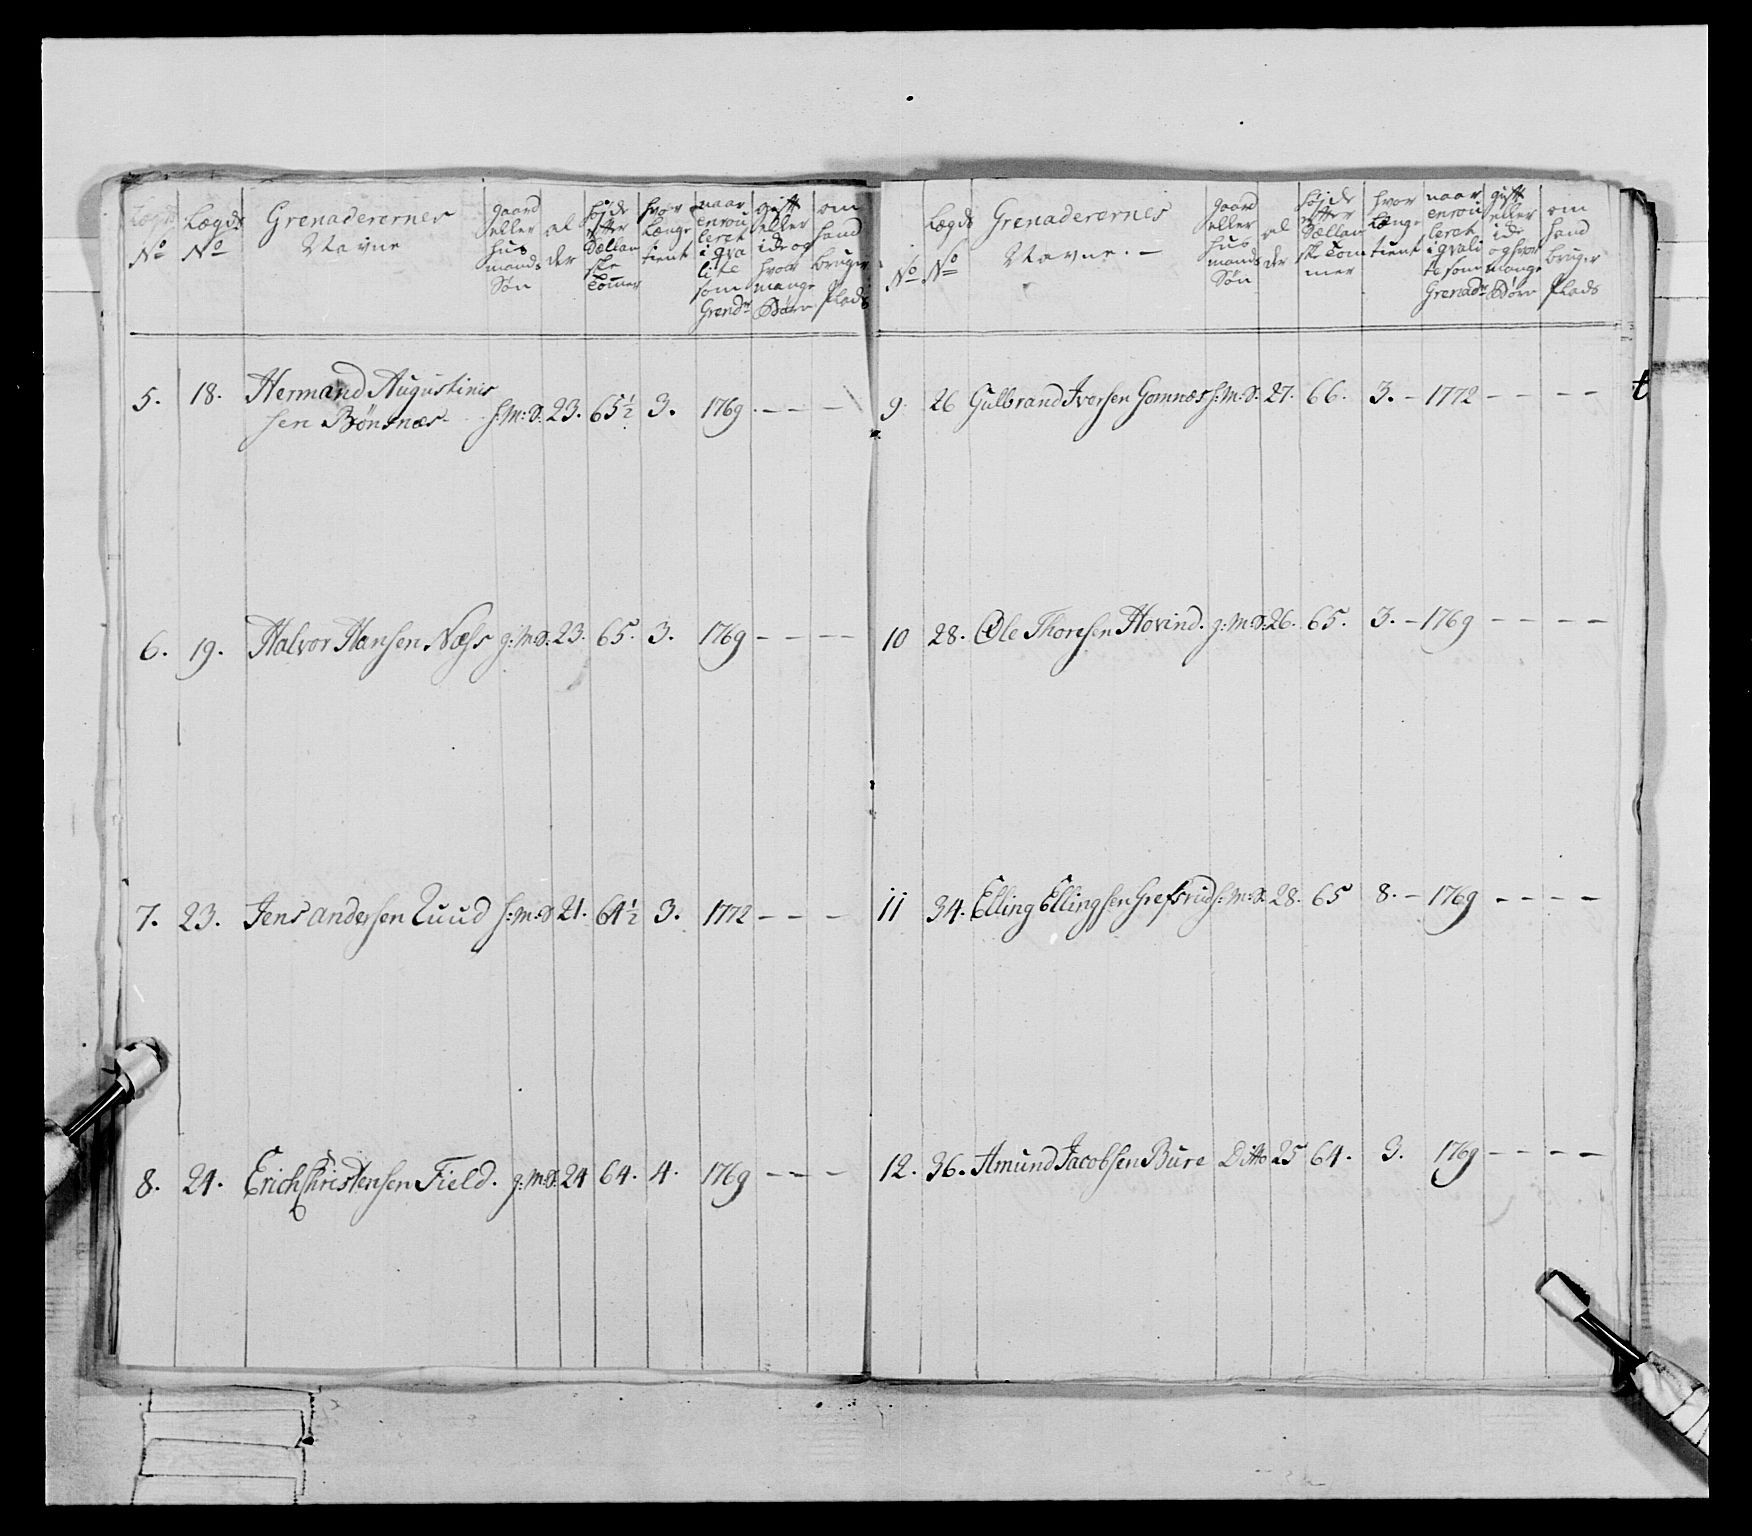 No
Lægds No
Grenaderernes Navne
gaard eller hus mands Søn
al der
høyde efter Sællan ske Tomer
hvor længe tient
naar enrou leret i qva lite som Grendr
gift eller ide og hvor mange Børn
om hand bruger Plads
5. 18. Hermand Augustinis
sen Bönsnæs h: M: S. 23. 65½ 3. 1769. – – –
6. 19. Halvor Hansen Næss g: M: S. 23. 65. 3. 1769 – – – –
7. 23. Jens Andersen Ruud h: M: S 21. 64½ 3. 1772 – – –
8. 24. Erich Christensen Field. g: M: S. 24 64. 4. 1769 – – –
No
Lægds No
Grenaderernes Navne. –
gaard eller hus mands Søn
al der
høyde efter Sællan ske Tom mer
hvor længe tient
naar enrou leret i qvali te som Grenadr
gift eller ide og hvor mange Børn
om hand bruger Plads
9. 26 Gulbrand Iversen Gomnæs h: M: S. 27. 66. 3. – 1772 – – – –
10 28. Ole Thoresen Hovind. g: M: S. 26. 65. 3. – 1769 – – – –
11 34. Elling Ellingsen Grefsrud h: M: S. 28. 65 8. – 1769 – – – –
12. 36. Amund Jacobsen Bure Ditto 25 64. 3. 1769 – – – –